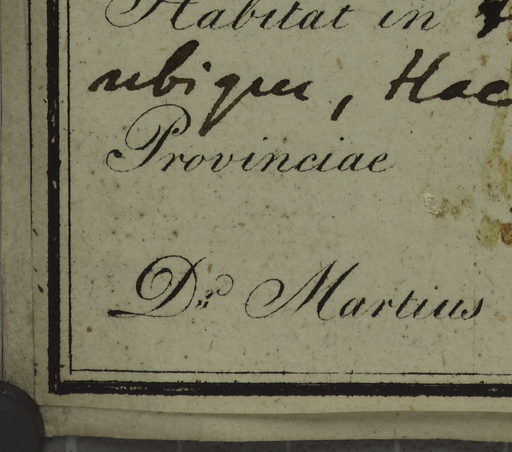 Habitat in
ubique, Hac
Provinciae
Dr. Martius